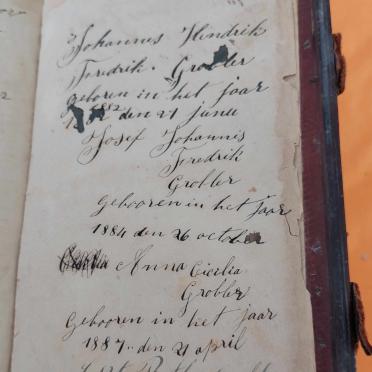 Johannes Hendrik
Fredrik. Grobler
geboren in het jaar
1882 den 21 Junee
Josef Johannis
Fredrik
Grobler
Gebooren in het Jaar
1884 den 26 october
Anna Cicelia
Grobler
Gebooren in het jaar
1887.. den 21 april